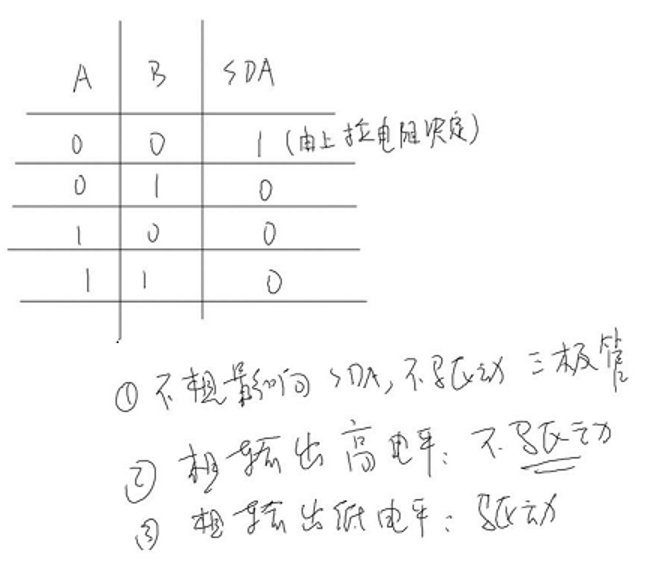 A B SDA
0 0 1 (由上拉电阻决定)
0 1 0
1 0 0
1 1 0
① 不想影响 SDA, 不驱动三极管
② 想输出高电平: 不驱动
③ 想输出低电平: 驱动